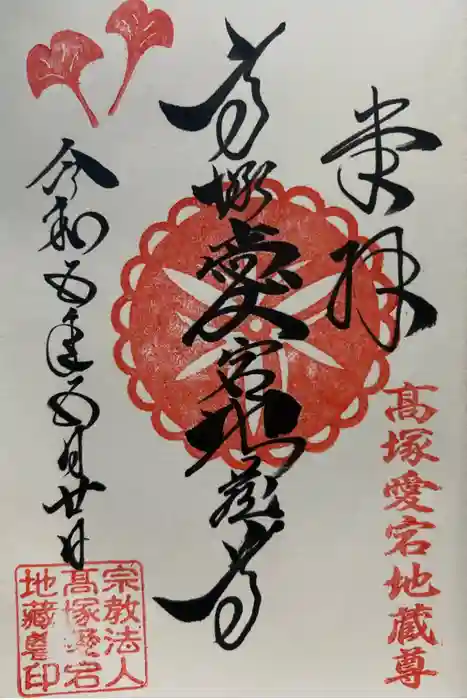 奉拝
髙塚愛宕地蔵尊
高塚愛宕地蔵尊
令和五年五月廿日
宗教法人
髙塚愛宕
地蔵尊印